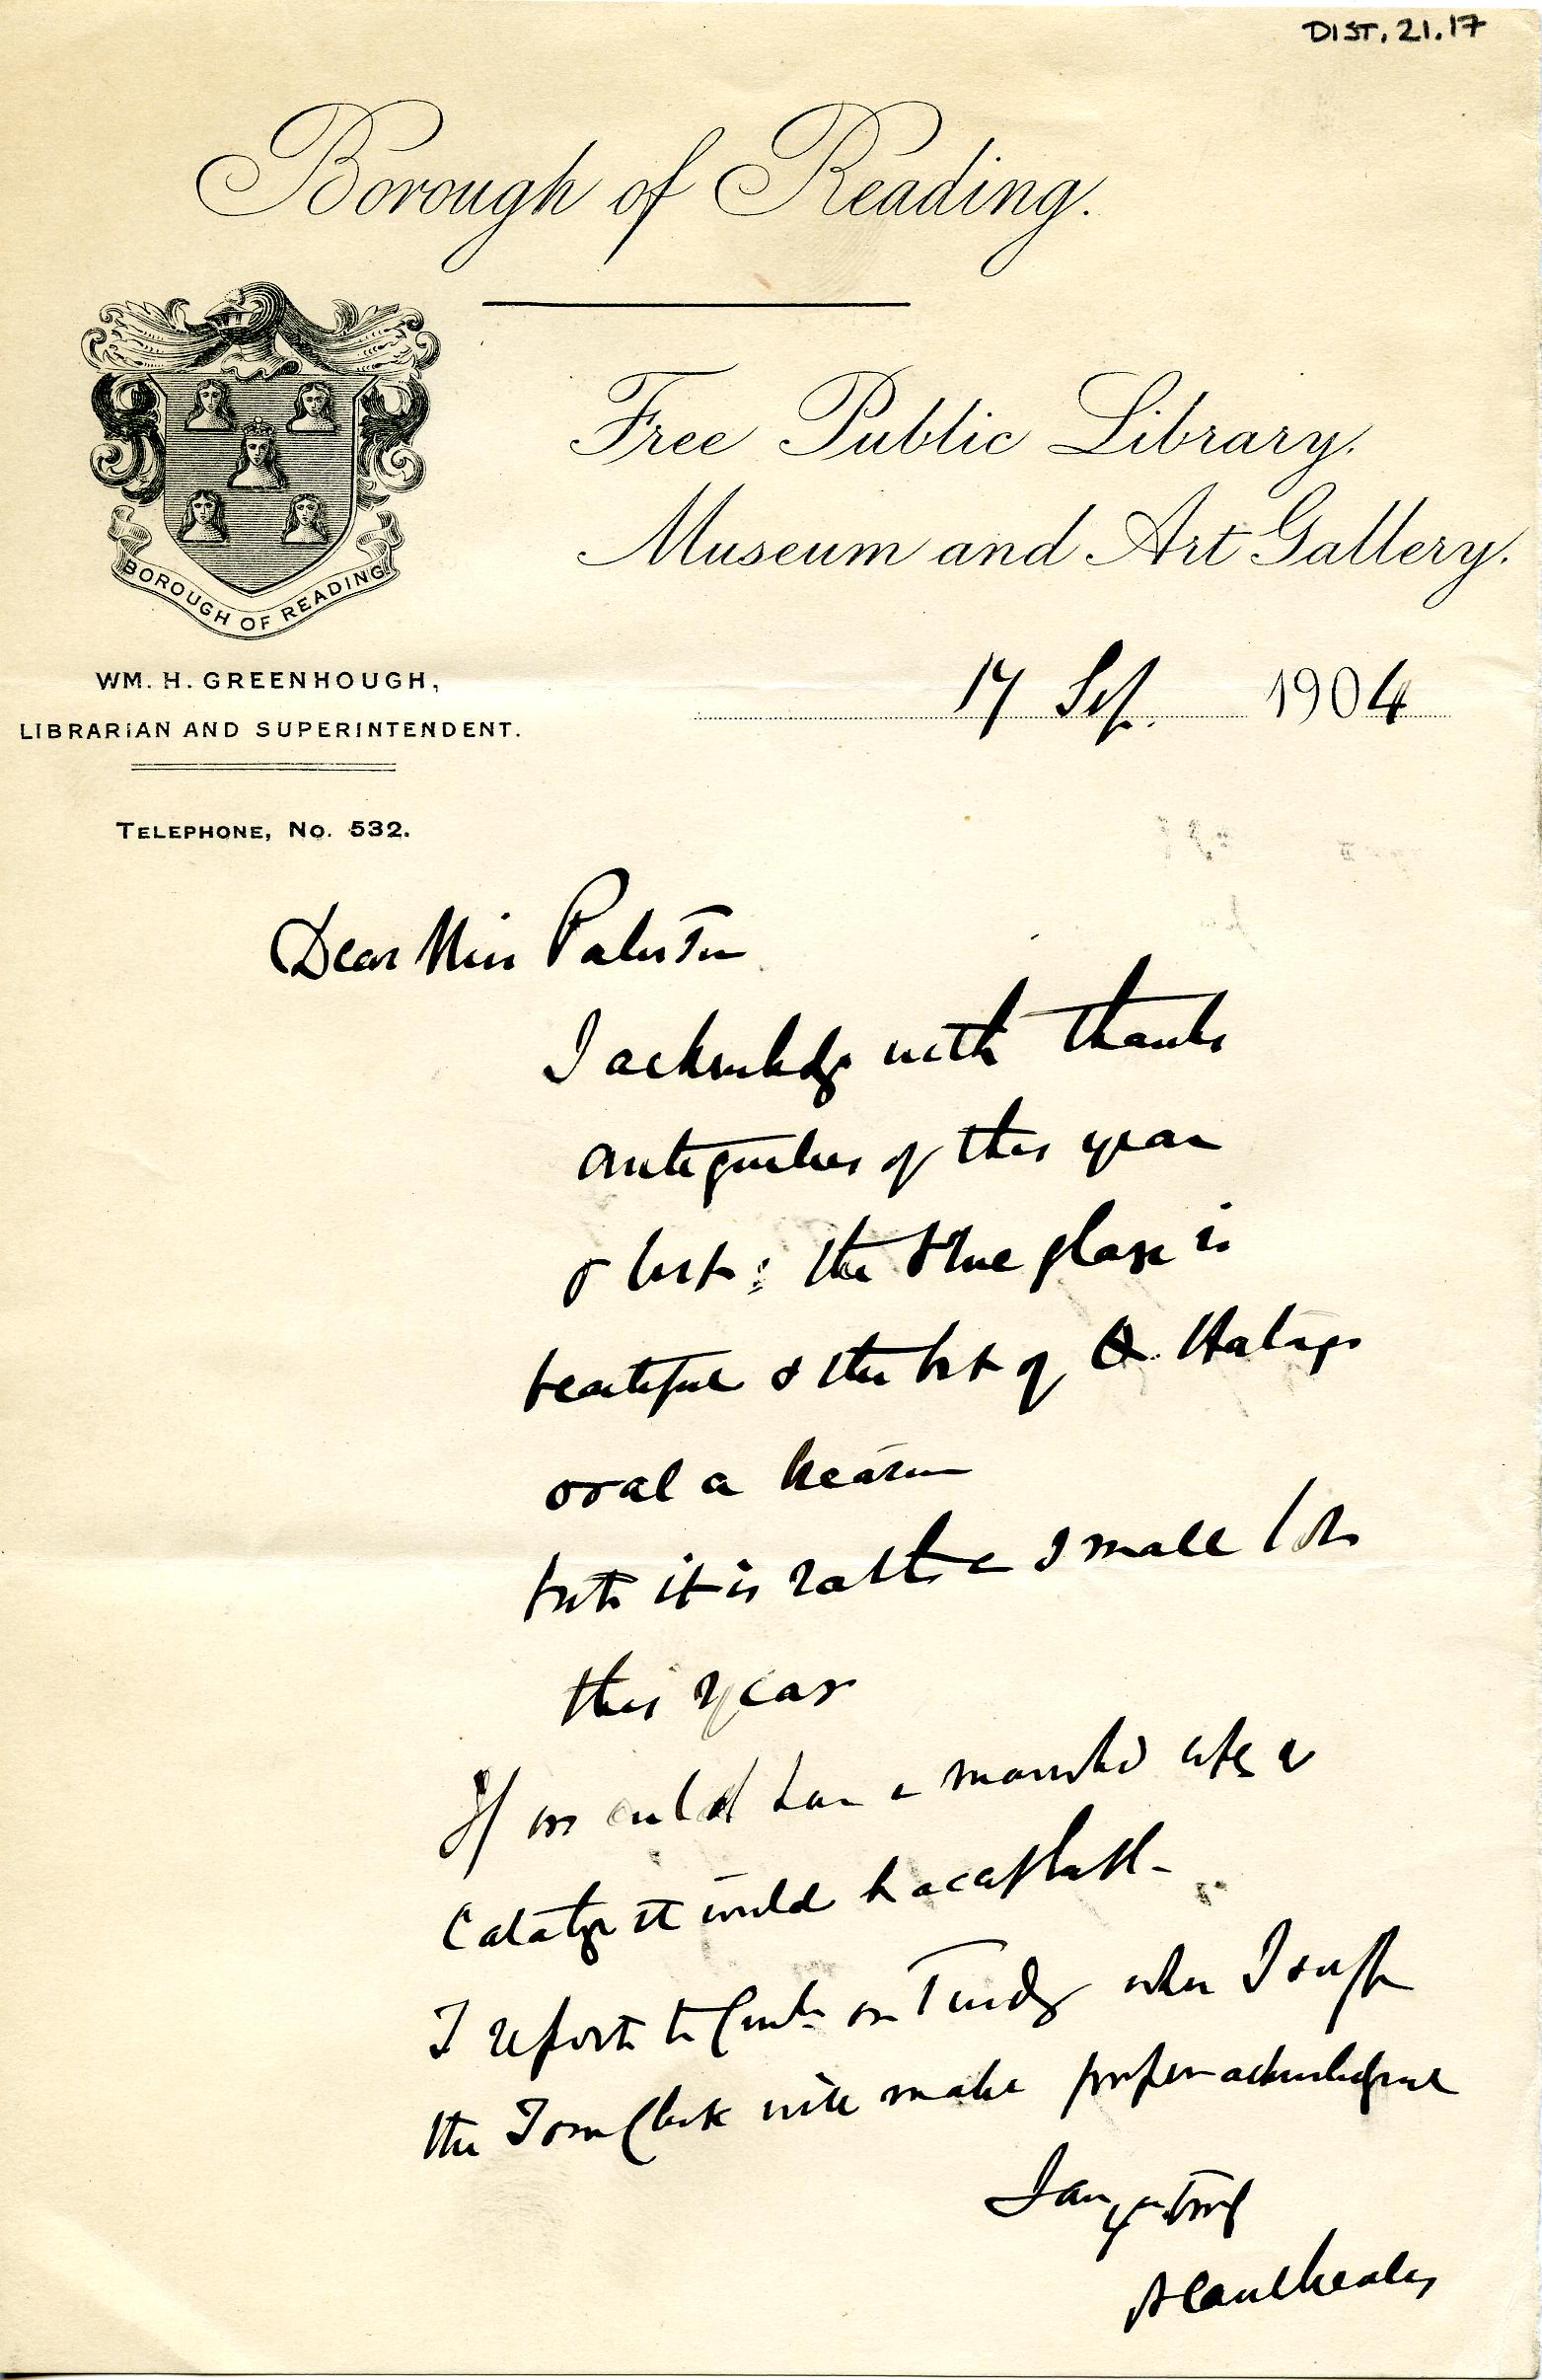 DIST. 21.17
Borough of Reading.
Free Public Library.
Museum and Art Gallery.
BOROUGH OF READING
WM. H. GREENHOUGH,
LIBRARIAN AND SUPERINTENDENT.
TELEPHONE, No. 532.
17 Sep. 1904
Dear Miss Paterson
I acknowledge with thanks
antiquities of this year
& last: the blue glaze is
beautiful & the bit of Q. Hatasu
oval a
but it is rather a small lot
this year
If we could have a
it would be acceptable
I report to on Tuesday when I
the Town Clerk will make proper acknowledgment
I am yrs truly